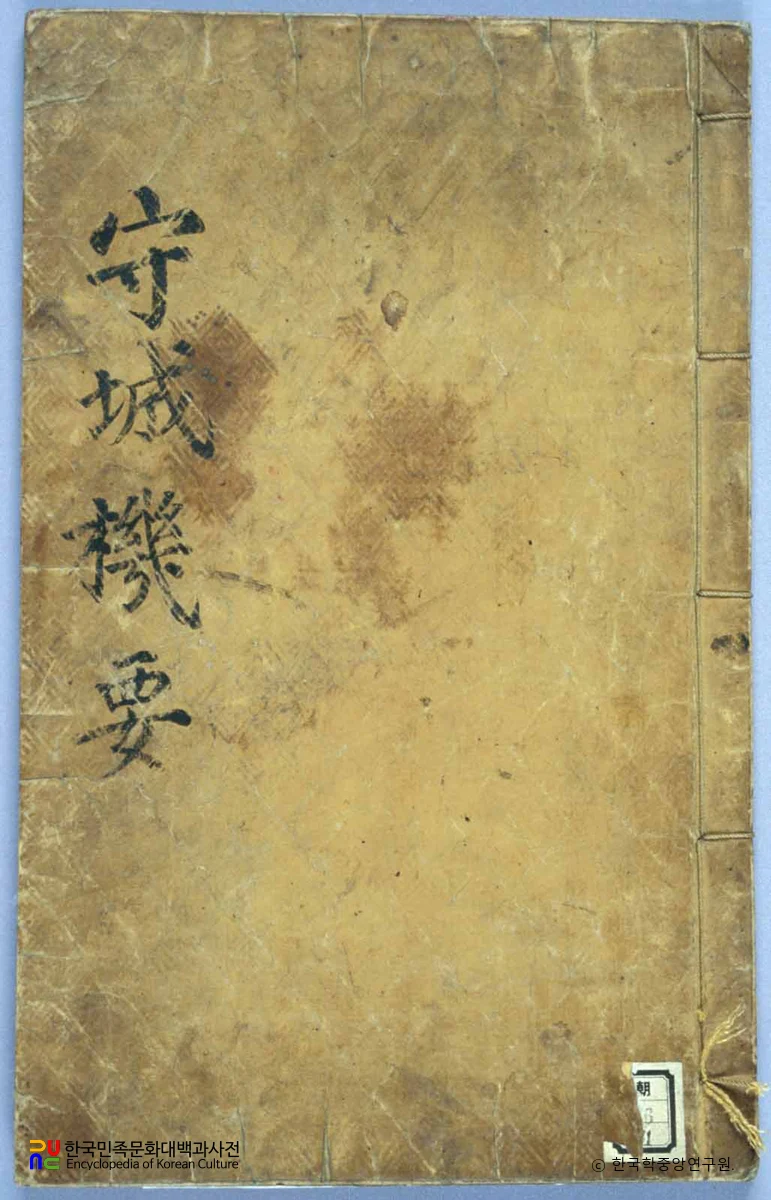 守城機要
朝
한국민족문화대백과사전
Encyclopedia of Korean Culture
© 한국학중앙연구원